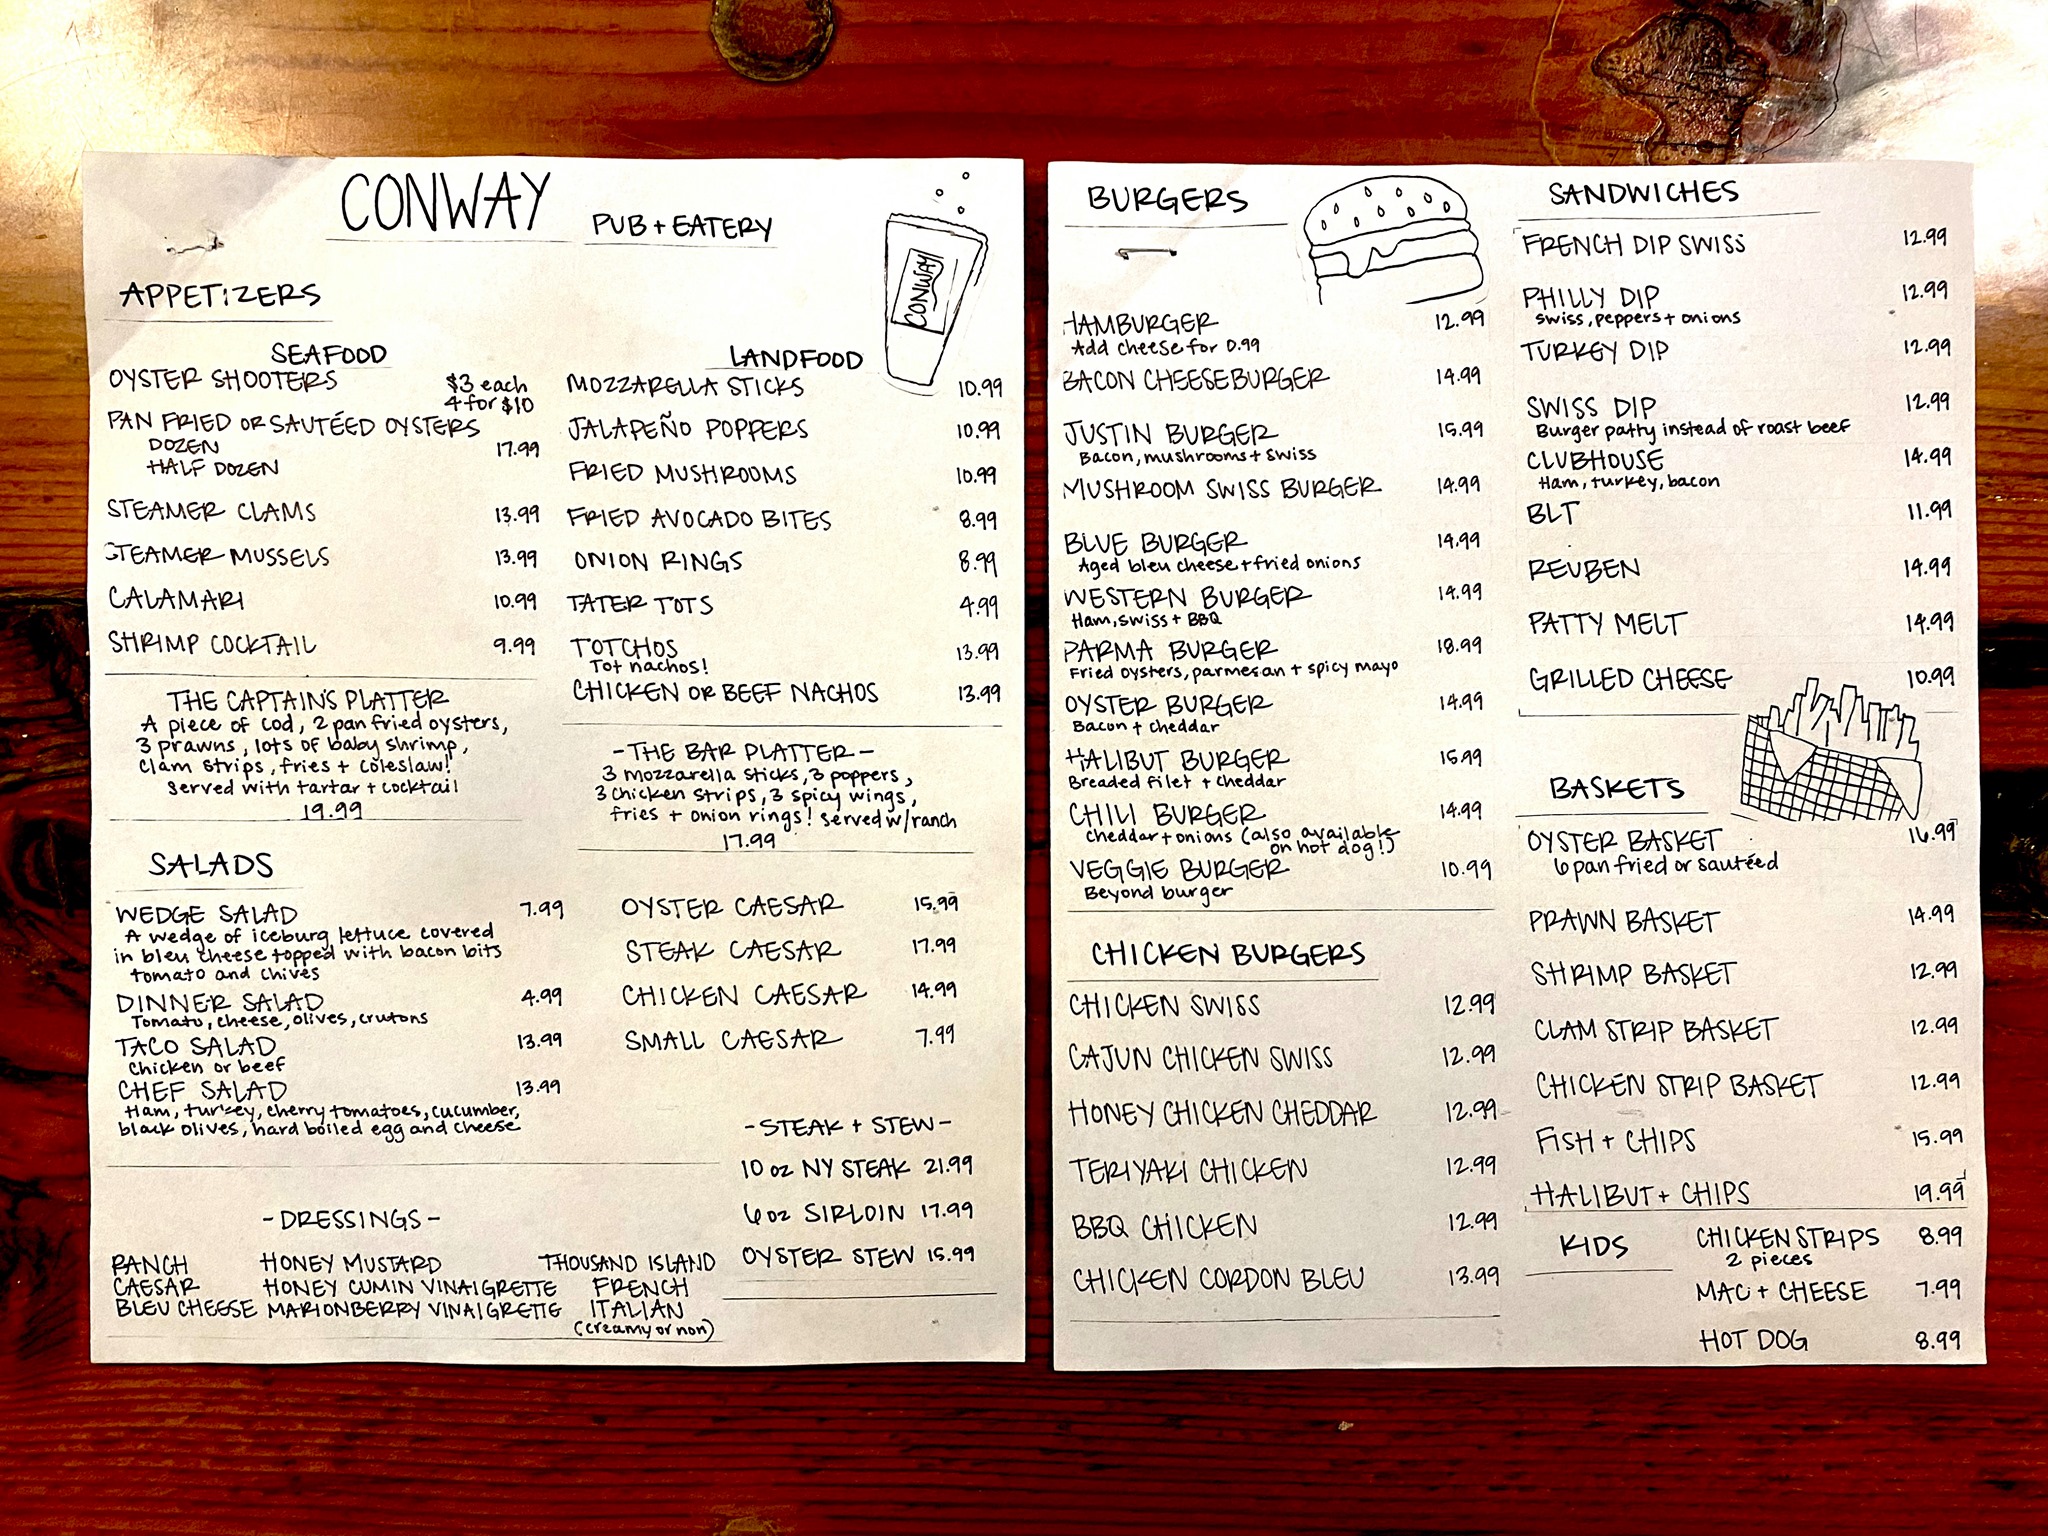 CONWAY PUB + EATERY
CONWAY
APPETIZERS
SEAFOOD
OYSTER SHOOTERS $3 each
4 for $10
PAN FRIED OR SAUTÉED OYSTERS
DOZEN 17.99
HALF DOZEN
STEAMER CLAMS 13.99
STEAMER MUSSELS 13.99
CALAMARI 10.99
SHRIMP COCKTAIL 9.99
THE CAPTAIN'S PLATTER
A piece of cod, 2 pan fried oysters,
3 prawns, lots of baby shrimp,
clam strips, fries + coleslaw!
served with tartar + cocktail
19.99
LANDFOOD
MOZZARELLA STICKS 10.99
JALAPEÑO POPPERS 10.99
FRIED MUSHROOMS 10.99
FRIED AVOCADO BITES 8.99
ONION RINGS 8.99
TATER TOTS 4.99
TOTCHOS 13.99
Tot nachos!
CHICKEN OR BEEF NACHOS 13.99
- THE BAR PLATTER -
3 mozzarella sticks, 3 poppers,
3 chicken strips, 3 spicy wings,
fries + onion rings! served w/ranch
17.99
SALADS
WEDGE SALAD 7.99
A wedge of iceburg lettuce covered
in bleu cheese topped with bacon bits
tomato and chives
DINNER SALAD 4.99
Tomato, cheese, olives, crutons
TACO SALAD 13.99
Chicken or beef
CHEF SALAD 13.99
Ham, turkey, cherry tomatoes, cucumber,
black olives, hard boiled egg and cheese
OYSTER CAESAR 15.99
STEAK CAESAR 17.99
CHICKEN CAESAR 14.99
SMALL CAESAR 7.99
- STEAK + STEW -
10 oz NY STEAK 21.99
6 oz SIRLOIN 17.99
OYSTER STEW 15.99
- DRESSINGS -
RANCH HONEY MUSTARD THOUSAND ISLAND
CAESAR HONEY CUMIN VINAIGRETTE FRENCH
BLEU CHEESE MARIONBERRY VINAIGRETTE ITALIAN
(creamy or non)
BURGERS
HAMBURGER 12.99
Add cheese for 0.99
BACON CHEESEBURGER 14.99
JUSTIN BURGER 15.99
Bacon, mushrooms + swiss
MUSHROOM SWISS BURGER 14.99
BLUE BURGER 14.99
Aged bleu cheese + fried onions
WESTERN BURGER 14.99
Ham, swiss + BBQ
PARMA BURGER 18.99
Fried oysters, parmesan + spicy mayo
OYSTER BURGER 14.99
Bacon + cheddar
HALIBUT BURGER 15.99
Breaded filet + cheddar
CHILI BURGER 14.99
cheddar + onions (also available
on hot dog!)
VEGGIE BURGER 10.99
Beyond burger
CHICKEN BURGERS
CHICKEN SWISS 12.99
CAJUN CHICKEN SWISS 12.99
HONEY CHICKEN CHEDDAR 12.99
TERIYAKI CHICKEN 12.99
BBQ CHICKEN 12.99
CHICKEN CORDON BLEU 13.99
SANDWICHES
FRENCH DIP SWISS 12.99
PHILLY DIP 12.99
swiss, peppers + onions
TURKEY DIP 12.99
SWISS DIP 12.99
Burger patty instead of roast beef
CLUBHOUSE 14.99
Ham, turkey, bacon
BLT 11.99
REUBEN 14.99
PATTY MELT 14.99
GRILLED CHEESE 10.99
BASKETS
OYSTER BASKET 16.99
6 pan fried or sautéed
PRAWN BASKET 14.99
SHRIMP BASKET 12.99
CLAM STRIP BASKET 12.99
CHICKEN STRIP BASKET 12.99
FISH + CHIPS 15.99
HALIBUT + CHIPS 19.99
KIDS
CHICKEN STRIPS 8.99
2 pieces
MAC + CHEESE 7.99
HOT DOG 8.99